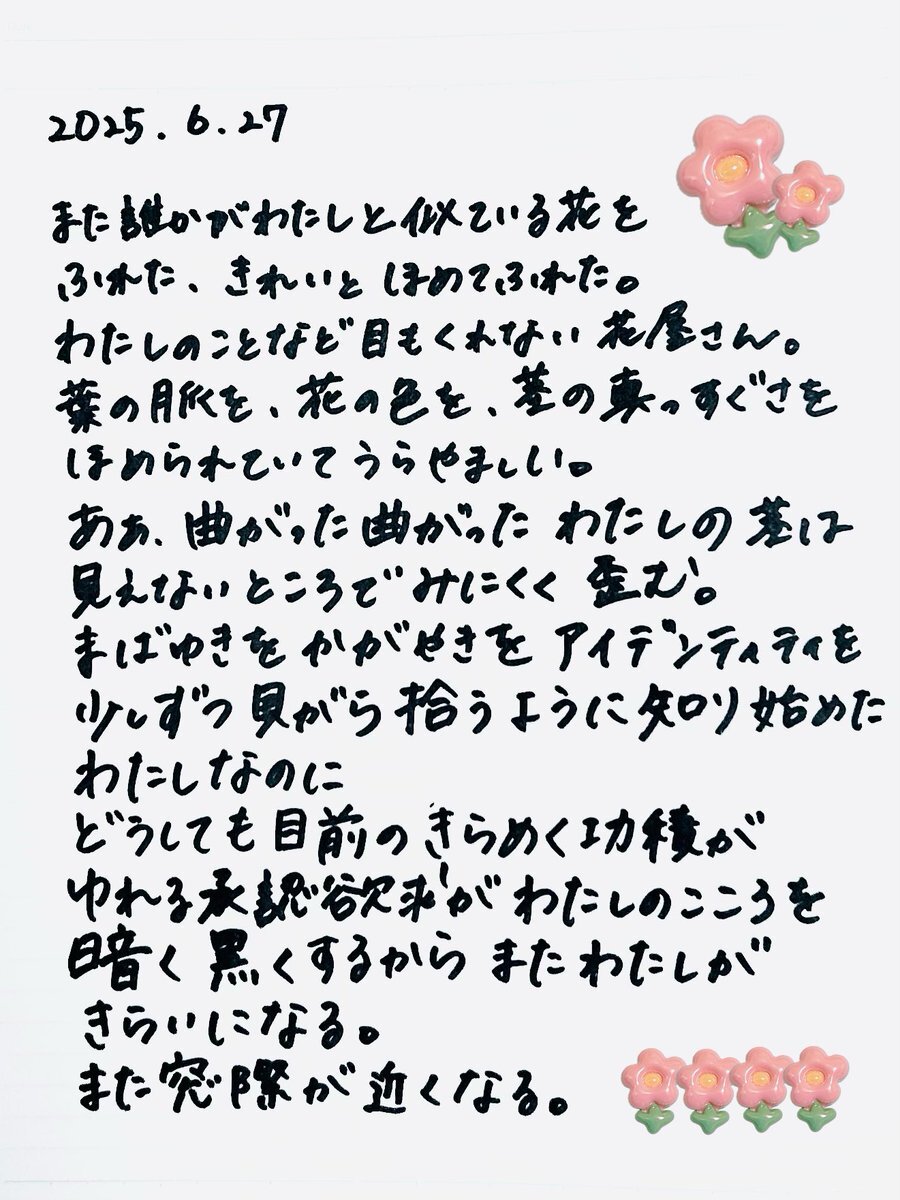 2025.6.27
また誰かがわたしと似ている花を
ふれた、きれいと ほめてふれた。
わたしのことなど目もくれない 花屋さん。
葉の脈を、花の色を、茎の真っすぐさを
ほめられていてうらやましい。
あぁ、曲がった曲がった わたしの茎は
見えないところで みにくく 歪む。
まばゆきを かがやきを アイデンティティを
少しずつ 貝がら 拾うように 知り始めた
わたしなのに
どうしても目前の きらめく功積が
ゆれる承認欲求が わたしのこころを
暗く 黒くするから またわたしが
きらいになる。
また窓際が近くなる。